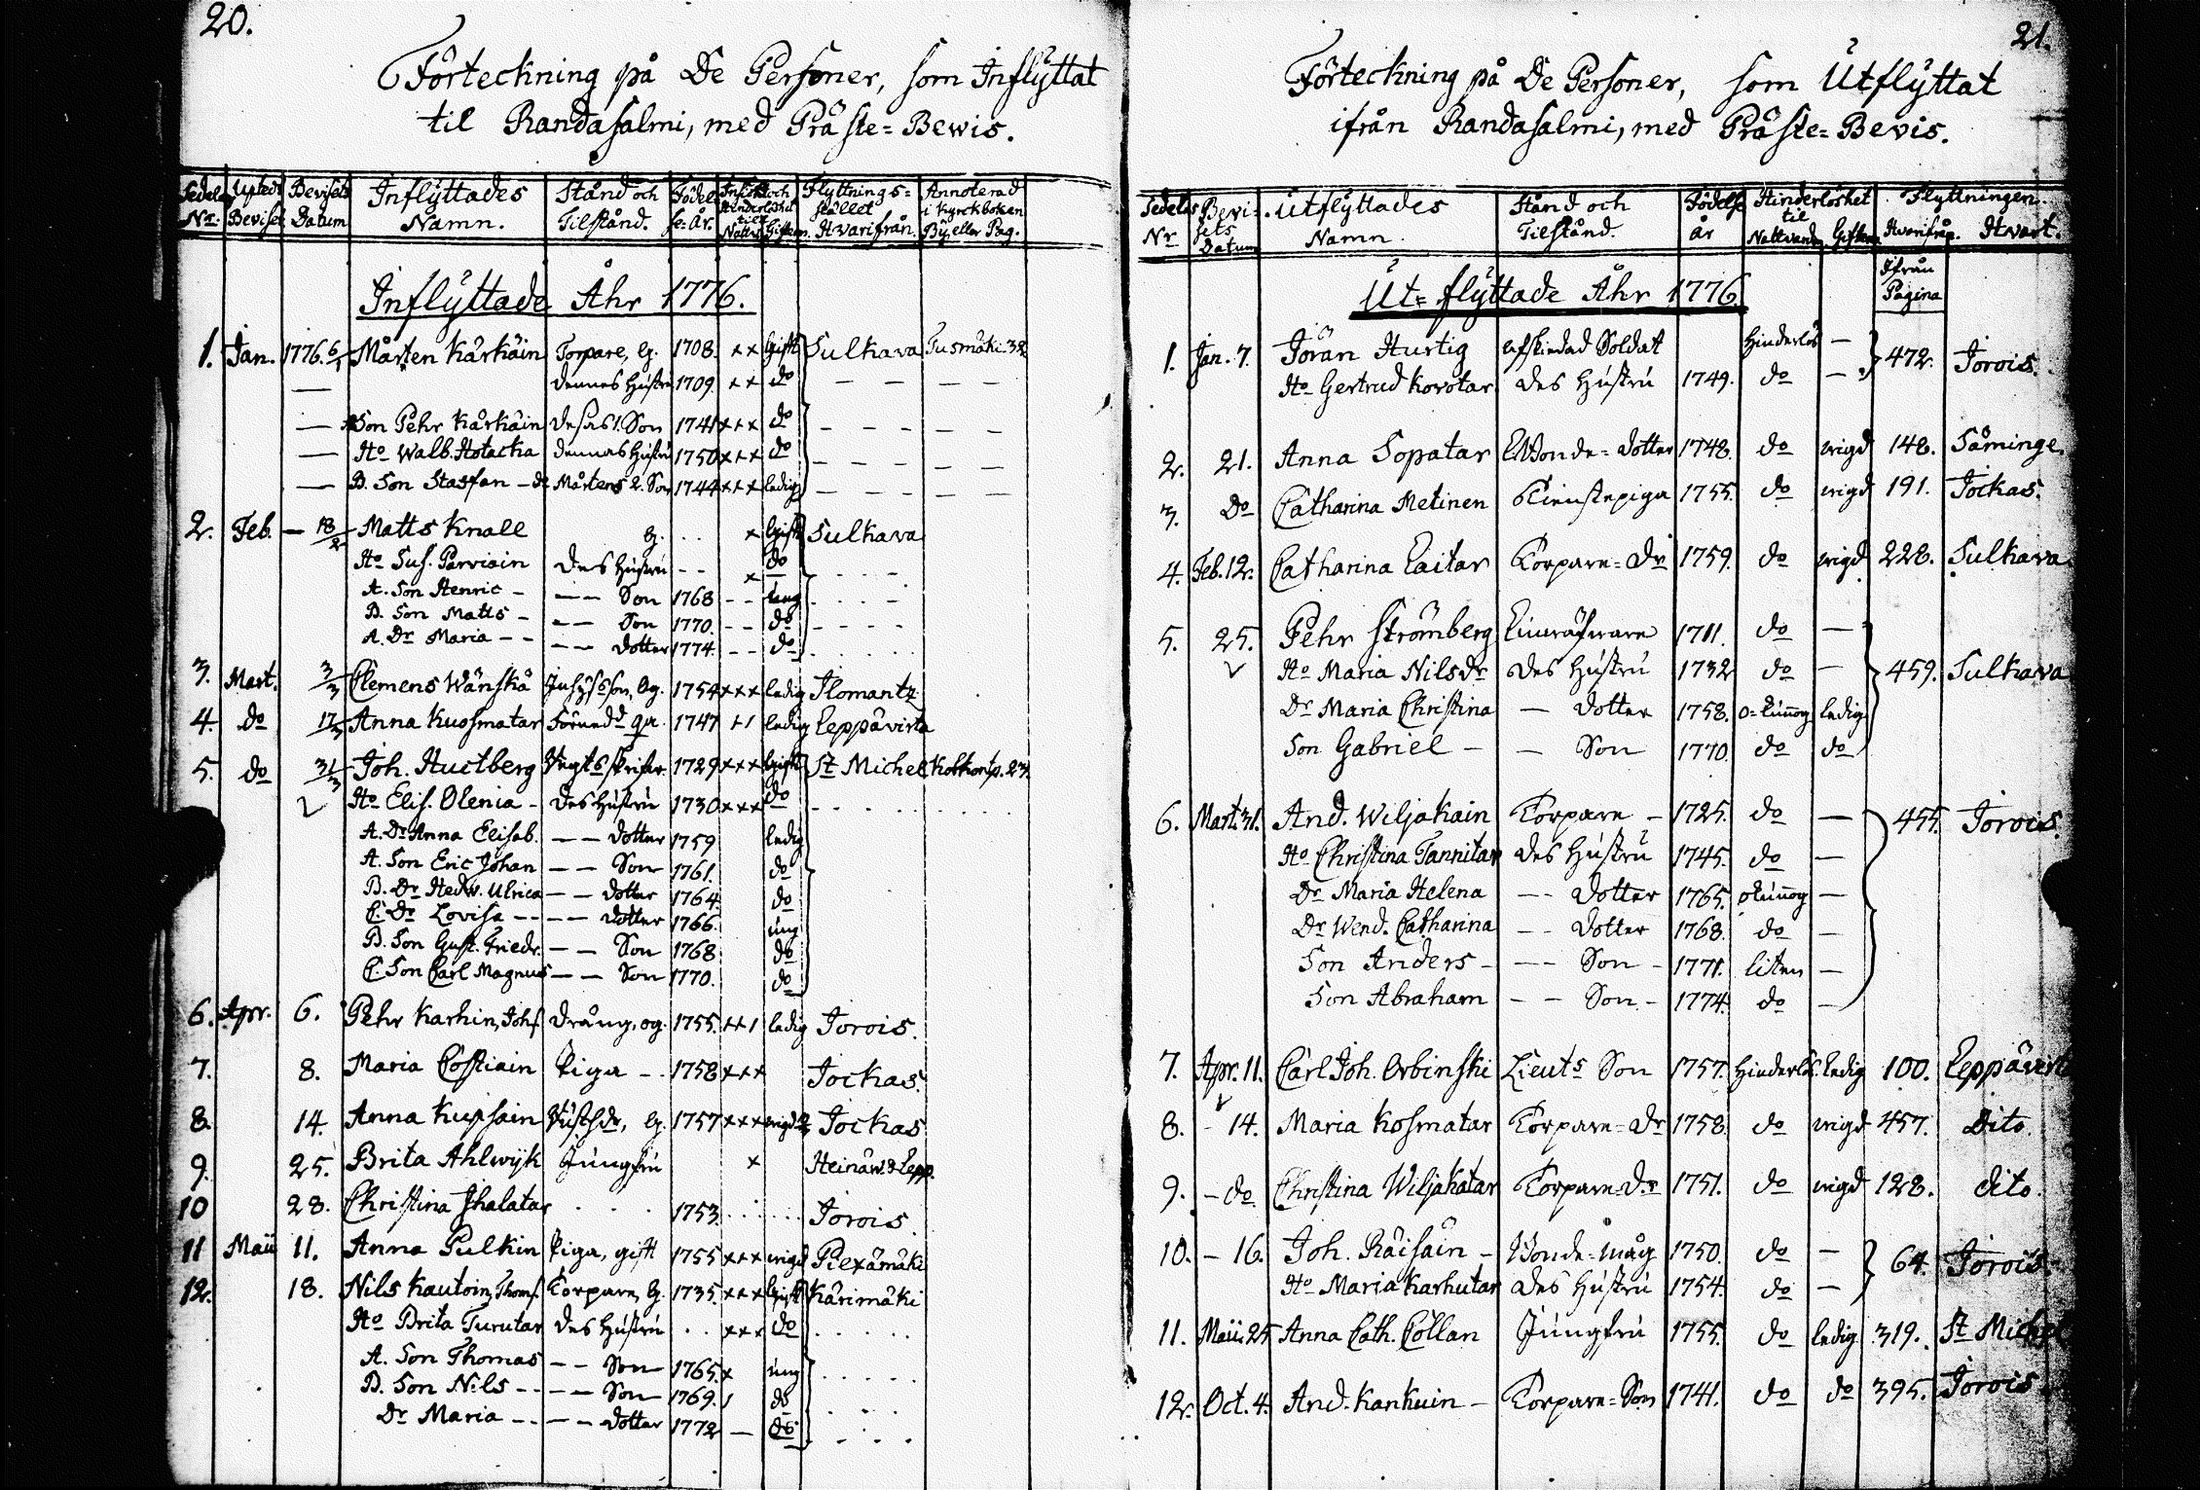 20.
Förteckning på De Personer, som Inflÿttat
til Randasalmi, med Präste=Bewis.
Sedel Nr. Bevisets Datum Inflÿttades Namn. Stånd och Tilstånd. Födelse=År. Flyttnings=stället Hvarifrån. Annoterad i Kyrckboken By eller Pag.
Inflÿttade Åhr 1776.
1. Jan. 1776. 6/1 Mårten Kärhäin Torpare, g. 1708. ×× Gift Sulkava Tusmäki. 32
— dennes Hustru 1709 ×× do — — — —
— Son Pehr Kärhäin 1. Son 1741 ××× do — — — — —
— Ho Walb. Hotacka dennes Hustru 1750 ××× do — — — — —
— B. Son Staffan — Mårtens 2. Son 1744 ××× ledig — — — — —
2. Feb. — 18/2 Matts Knall g. . . × Gift Sulkava
Ho Sus. Parviain des Hustru - - × do . - - -
A. Son Henric - — — Son 1768 - - ung . . . -
B. Son Matts - - — Son 1770. - - do - - - -
A. Dr Maria - - — — dotter 1774. - - do . . . . .
3. Mart. 3/3 Clemens Wänskä 1754 ××× ledig Ilomantz
4. do 17/3 Anna Kuosmatar 1747 +1 ledig Leppävirta
5. do 31/3 Joh. Hultberg 1729 ××× Gift St Michel
Ho Elis. Olenia - des Hustru 1730 ××× do . . . . . . . .
A. Dr Anna Elisab. — — dotter 1759 ledig
A. Son Eric Johan — — Son 1761. do
B. Dr Hedw. Ulrica — — dotter 1764. do
C. Dr Lovisa - - — — dotter 1766. ung
B. Son Gust. Friedr. — — Son 1768 do
C. Son Carl Magnus — — Son 1770. do
6. Apr. 6. Pehr Karhin, Johs. dräng, og. 1755. ××1 ledig Jorois.
7. 8. Maria Costiain Piga - . 1758 ××× Jockas.
8. 14. Anna Kupsain 1757 ××× Jockas
9. 25. Brita Ahlwÿk Jungfru × Heinäw. & Lepp.
10 28. Christina Ihalatar . . . 1753. . . . . . Jorois.
11 Maii 11. Anna Pulkin Piga, gift 1755 ××× wigd Piexämäki
12. 18. Nils Kautoin, Thoms. Torpare, g. 1735. ××× Gift Kärimäki
Ho Brita Turutar des Hustru . . ××× do . . . . .
A. Son Thomas — — Son 1765. × ung . . . . .
B. Son Nils - - — — Son 1769. 1 do . . . .
Dr Maria - - — — dotter 1772 — do . . . .
21.
Förteckning på De Personer, som Utflÿttat
ifrån Randasalmi, med Präste=Bevis.
Sedelns Nr Bevisets Datum Utflÿttades Namn. Stånd och Tilstånd. Födelse år Hinderlöshet til Nattvarden Giftem. Flyttningen. Hvarifrån. Hvart.
Ut=flÿttade Åhr 1776. Ifrån Pagina
1. Jan. 7. Jöran Hurtig afskiedad Soldat Hinderlös — 472. Jorois.
Ho Gertrud Korotar des Hustru 1749. do —
2. 21. Anna Sopatar Bonde=dotter 1748. do wigd 148. Säminge.
3. Do Catharina Metinen Tienstepiga 1755. do wigd 191. Jockas.
4. Feb. 12. Catharina Laitar Torpare=Dr 1759. do wigd 228. Sulkava
5. 25. Pehr Strömberg 1711. do —
Ho Maria Nilsdr des Hustru 1732 do — 459. Sulkava
Dr Maria Christina — dotter 1758. ledig
Son Gabriel — — Son 1770. do do
6. Mart. 31. And. Wiljakain Torpare — 1725. do — 455. Jorois.
Ho Christina Tannitar des Hustru 1745. do —
Dr Maria Helena — - dotter 1765. —
Dr Wend. Catharina - - dotter 1768. do —
Son Anders - — - Son - 1771. liten —
Son Abraham - — Son - 1774. do —
7. Apr. 11. Carl Joh. Orbinski Lieuts Son 1757. Hinderlös. ledig 100. Leppävirta
8. - 14. Maria Kosmatar Torpare=Dr 1758. do wigd 457. Dito.
9. - do Christina Wiljakatar Torpare=Dr 1751. do wigd 128. dito.
10. - 16. Joh. Räisäin - Bonde=måg 1750. do — 64. Jorois.
Ho Maria Karhutar des Hustru 1754. do —
11. Maii. 25 Anna Cath. Collan Jungfru 1755. do ledig 319. St Michel
12. Oct. 4. And. Kankuin - Torpare=Son 1741. do do 395. Jorois